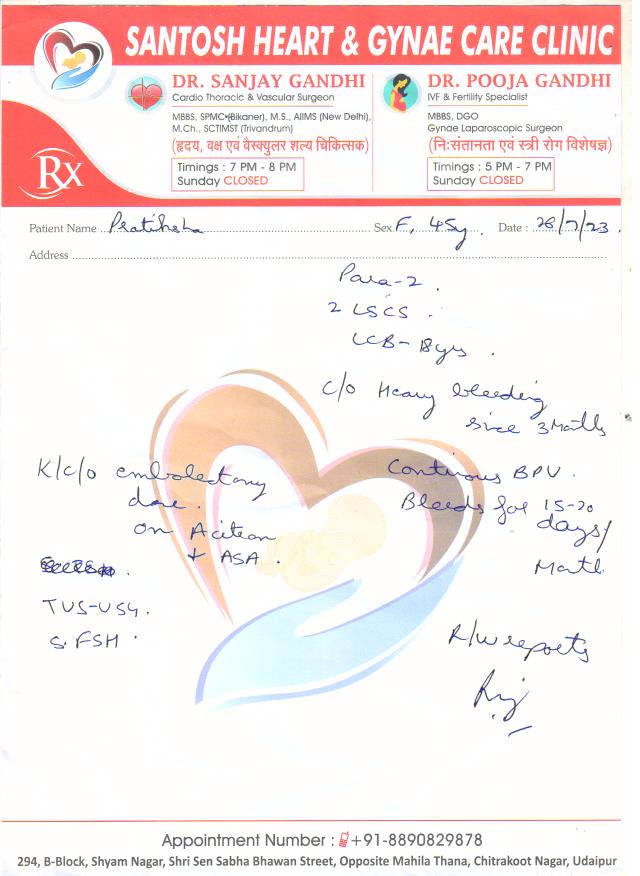 SANTOSH HEART & GYNAE CARE CLINIC
DR. SANJAY GANDHI
Cardio Thoracic & Vascular Surgeon
MBBS, SPMC (Bikaner), M.S., AIIMS (New Delhi),
M.Ch., SCTIMST (Trivandrum)
(हृदय, वक्ष एवं वेस्क्युलर शल्य चिकित्सक)
Timings : 7 PM - 8 PM
Sunday CLOSED
DR. POOJA GANDHI
IVF & Fertility Specialist
MBBS, DGO
Gynae Laparoscopic Surgeon
(निःसंतानता एवं स्त्री रोग विशेषज्ञ)
Timings : 5 PM - 7 PM
Sunday CLOSED
Rx
Patient Name Pratiksha Sex F, 45y Date : 28/7/23
Address
Para-2
2 LSCS
LCB - 18 yrs
C/O Heavy bleeding
since 3 Months
Continous BPV
Bleeds for 15-20
days/
Month
K/C/O embolectomy
done
on Acitrom
+ ASA
TVS-USG
S. FSH
R/W reports
Appointment Number : +91-8890829878
294, B-Block, Shyam Nagar, Shri Sen Sabha Bhawan Street, Opposite Mahila Thana, Chitrakoot Nagar, Udaipur